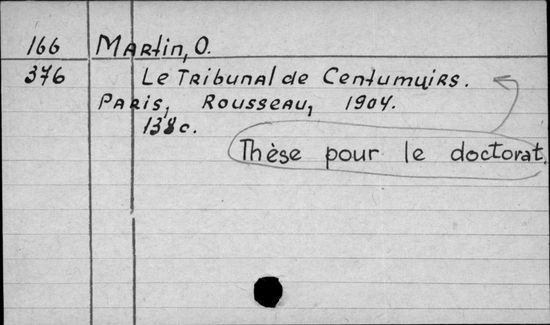 166 Martin, O.
376 Le Tribunal de Centumvirs.
Paris, Rousseau, 1904.
138 c.
Thèse pour le doctorat.